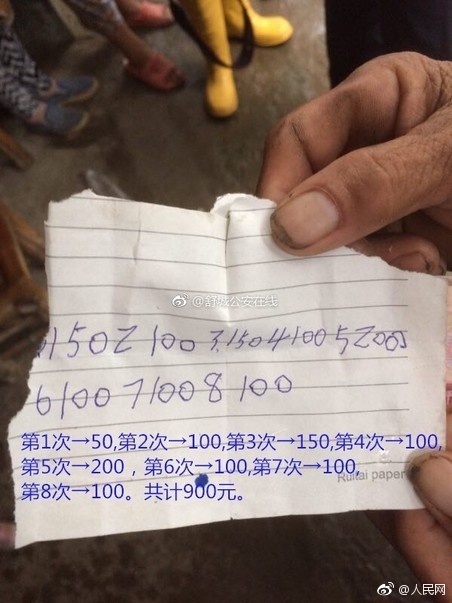 舒城公安在线
1502 100 3.150 4100 5200
6100 7100 8 100
第1次→50,第2次→100,第3次→150,第4次→100,
第5次→200，第6次→100,第7次→100,
第8次→100。共计900元。
Ruitai paper
@人民网